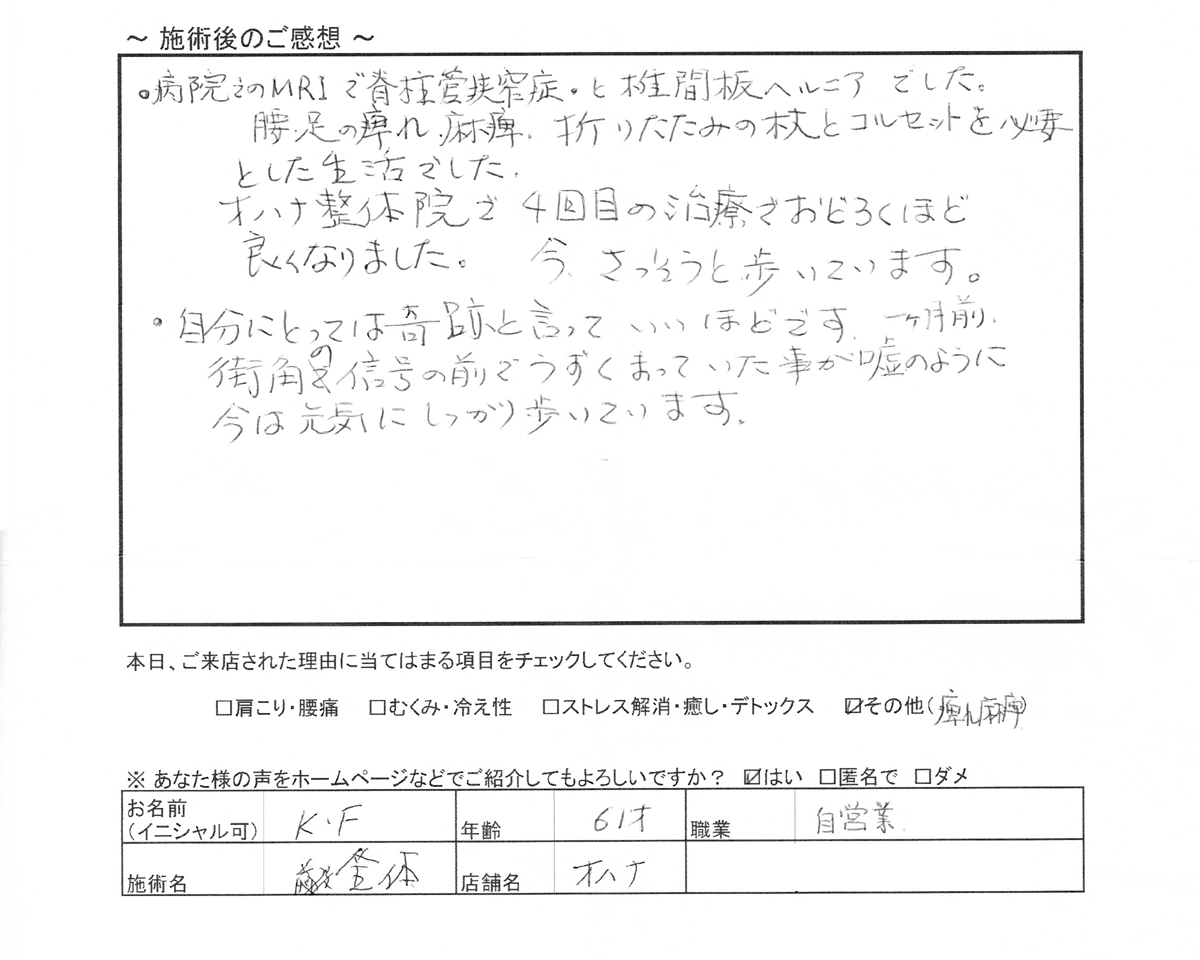 ～ 施術後のご感想 ～
・病院でのMRIで脊柱管狭窄症・と椎間板ヘルニアでした。
腰、足の痺れ、麻痺、折りたたみの杖とコルセットを必要
とした生活でした。
オハナ整体院で4回目の治療でおどろくほど
良くなりました。 今、さっそうと歩いています。
・自分にとっては奇跡と言っていいほどです。一ヶ月前、
街角の信号の前でうずくまっていた事が嘘のように
今は元気にしっかり歩いています。
本日、ご来店された理由に当てはまる項目をチェックしてください。
□肩こり・腰痛 □むくみ・冷え性 □ストレス解消・癒し・デトックス ☑その他(痺れ麻痺)
※ あなた様の声をホームページなどでご紹介してもよろしいですか？ ☑はい □匿名で □ダメ
お名前
（イニシャル可） K・F 年齢 61才 職業 自営業
施術名 整体 店舗名 オハナ